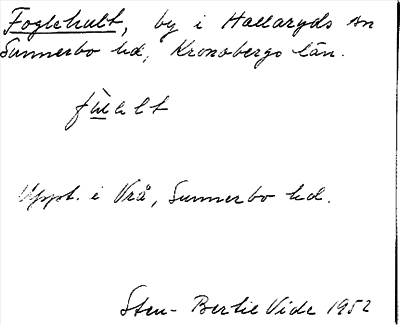 Foglehult, by i Hallaryds sn
Sunnerbo hd, Kronobergs län.
Uppt. i Vrå, Sunnerbo hd.
Sten-Bertil Vide 1952